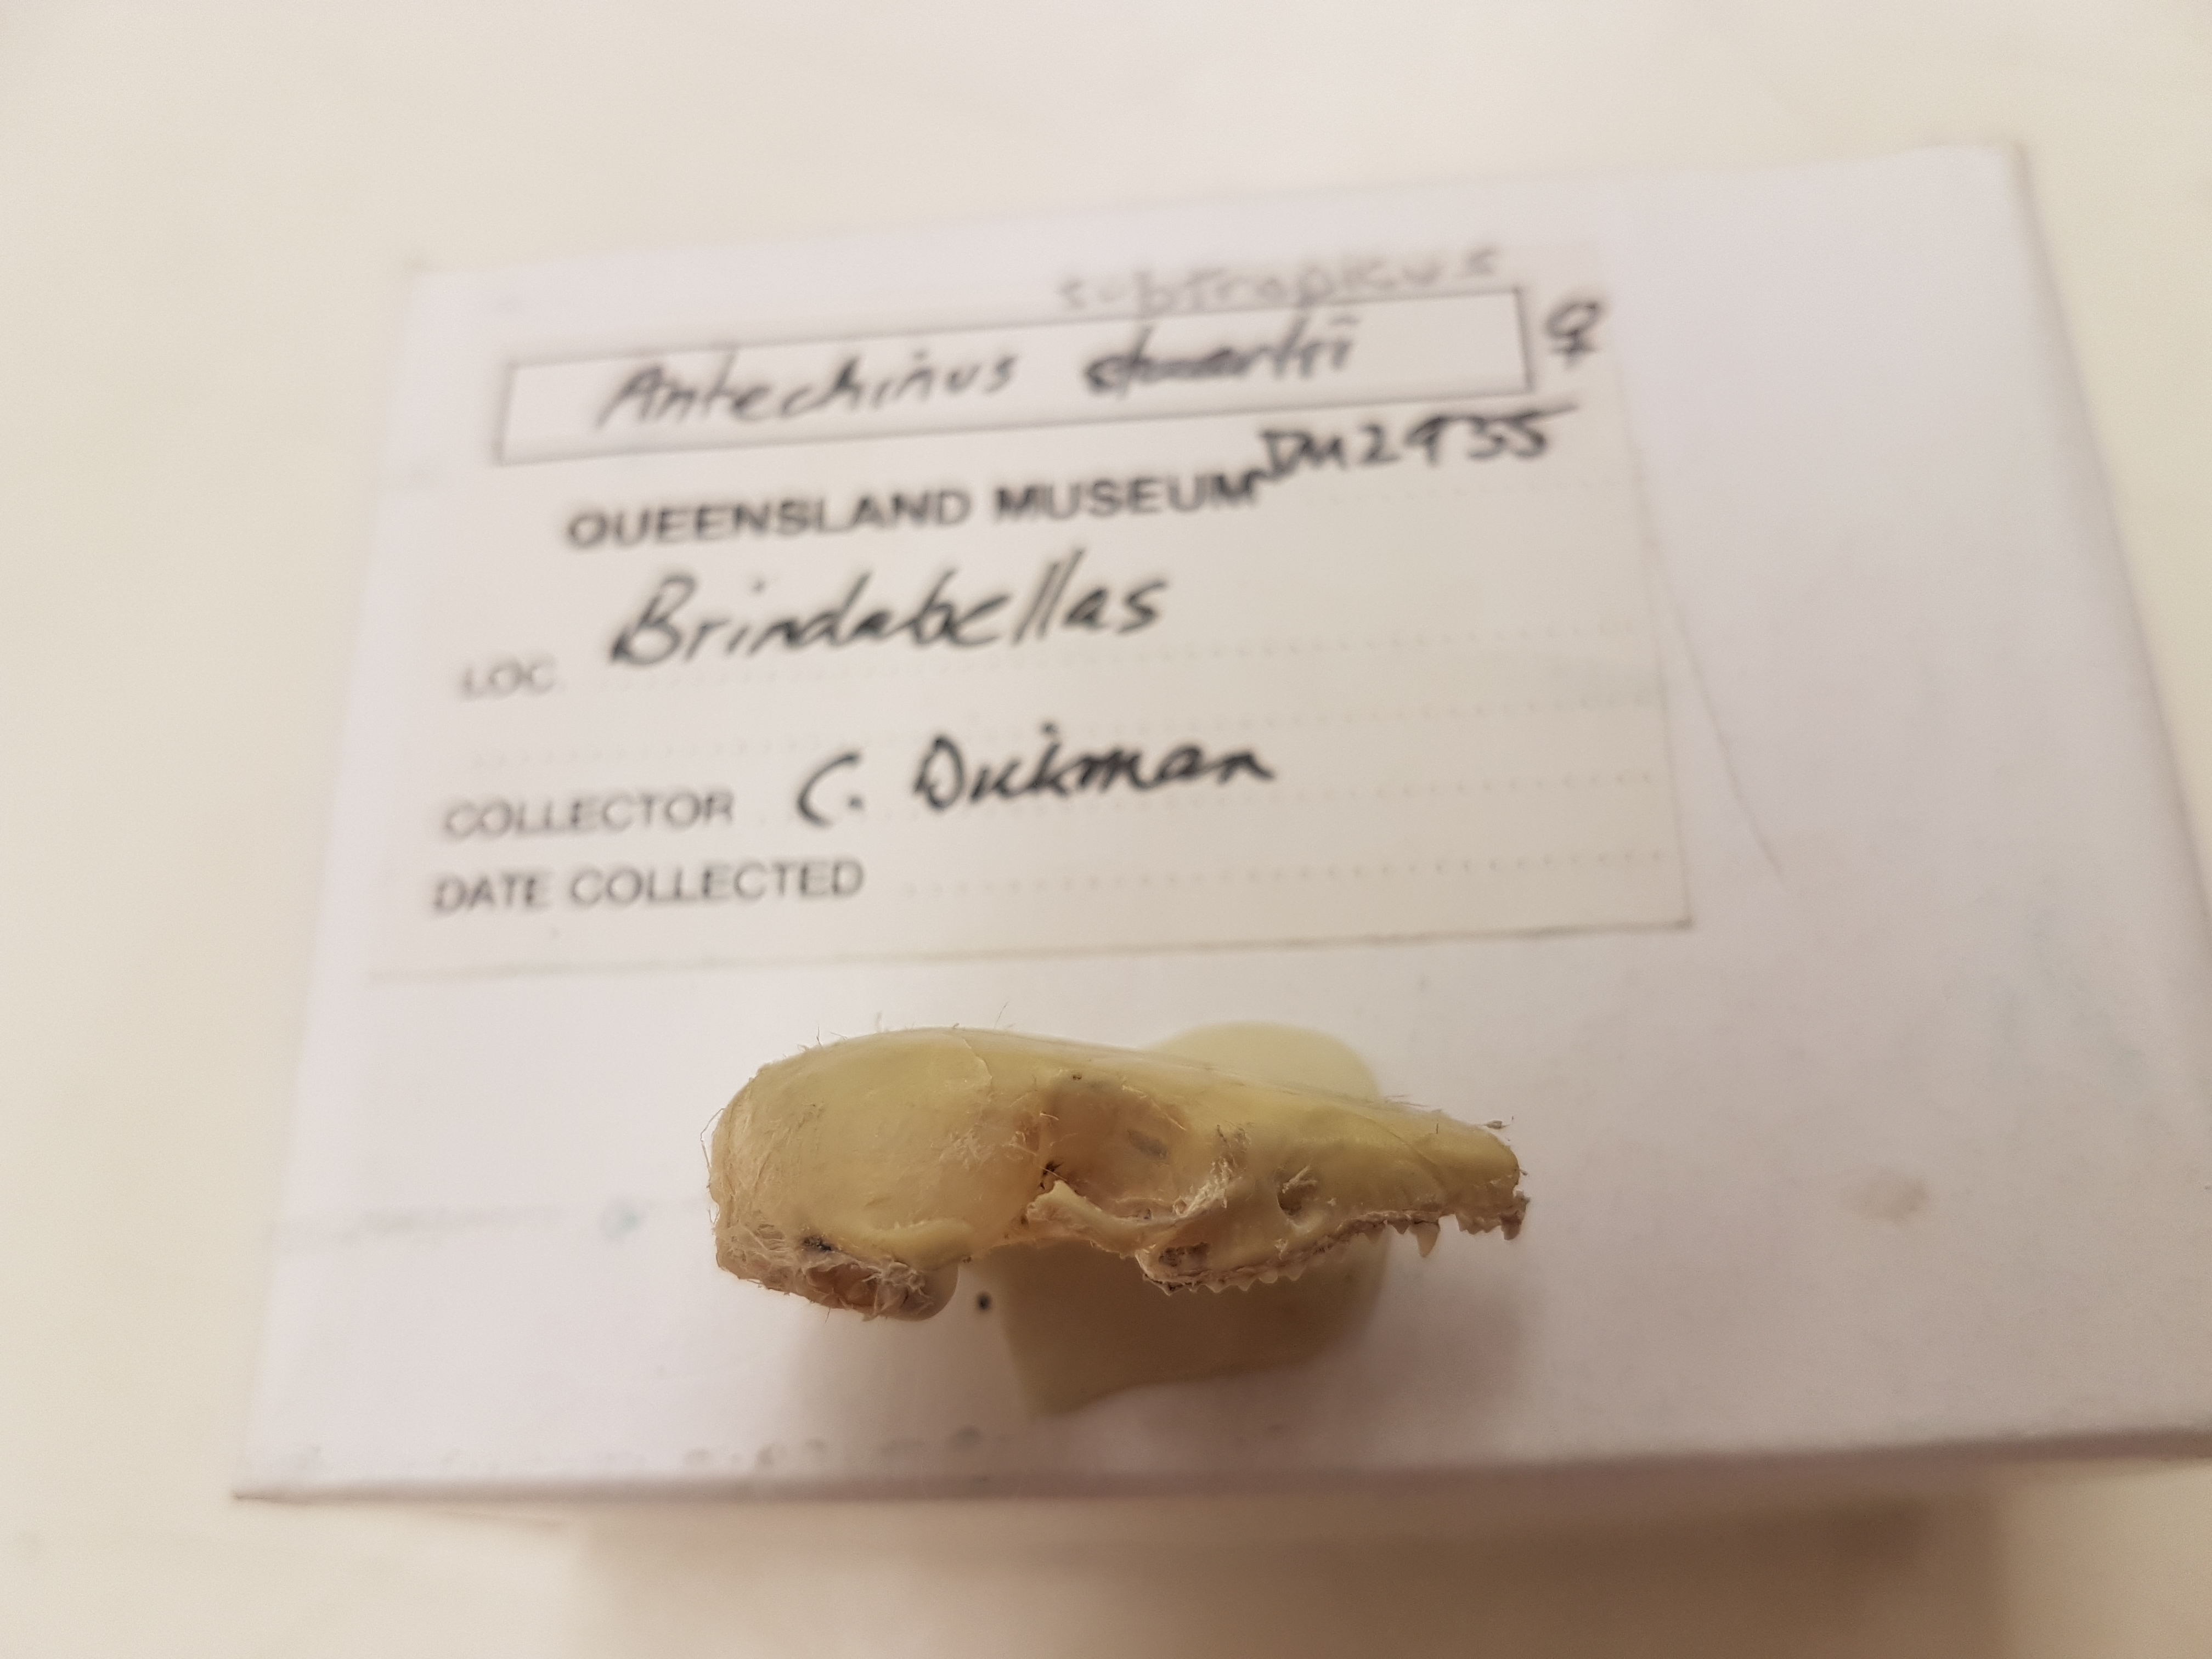 subtropicus
Antechinus stuartii ♀
QUEENSLAND MUSEUM
LOC. Brindabellas
COLLECTOR C. Dickman
DATE COLLECTED